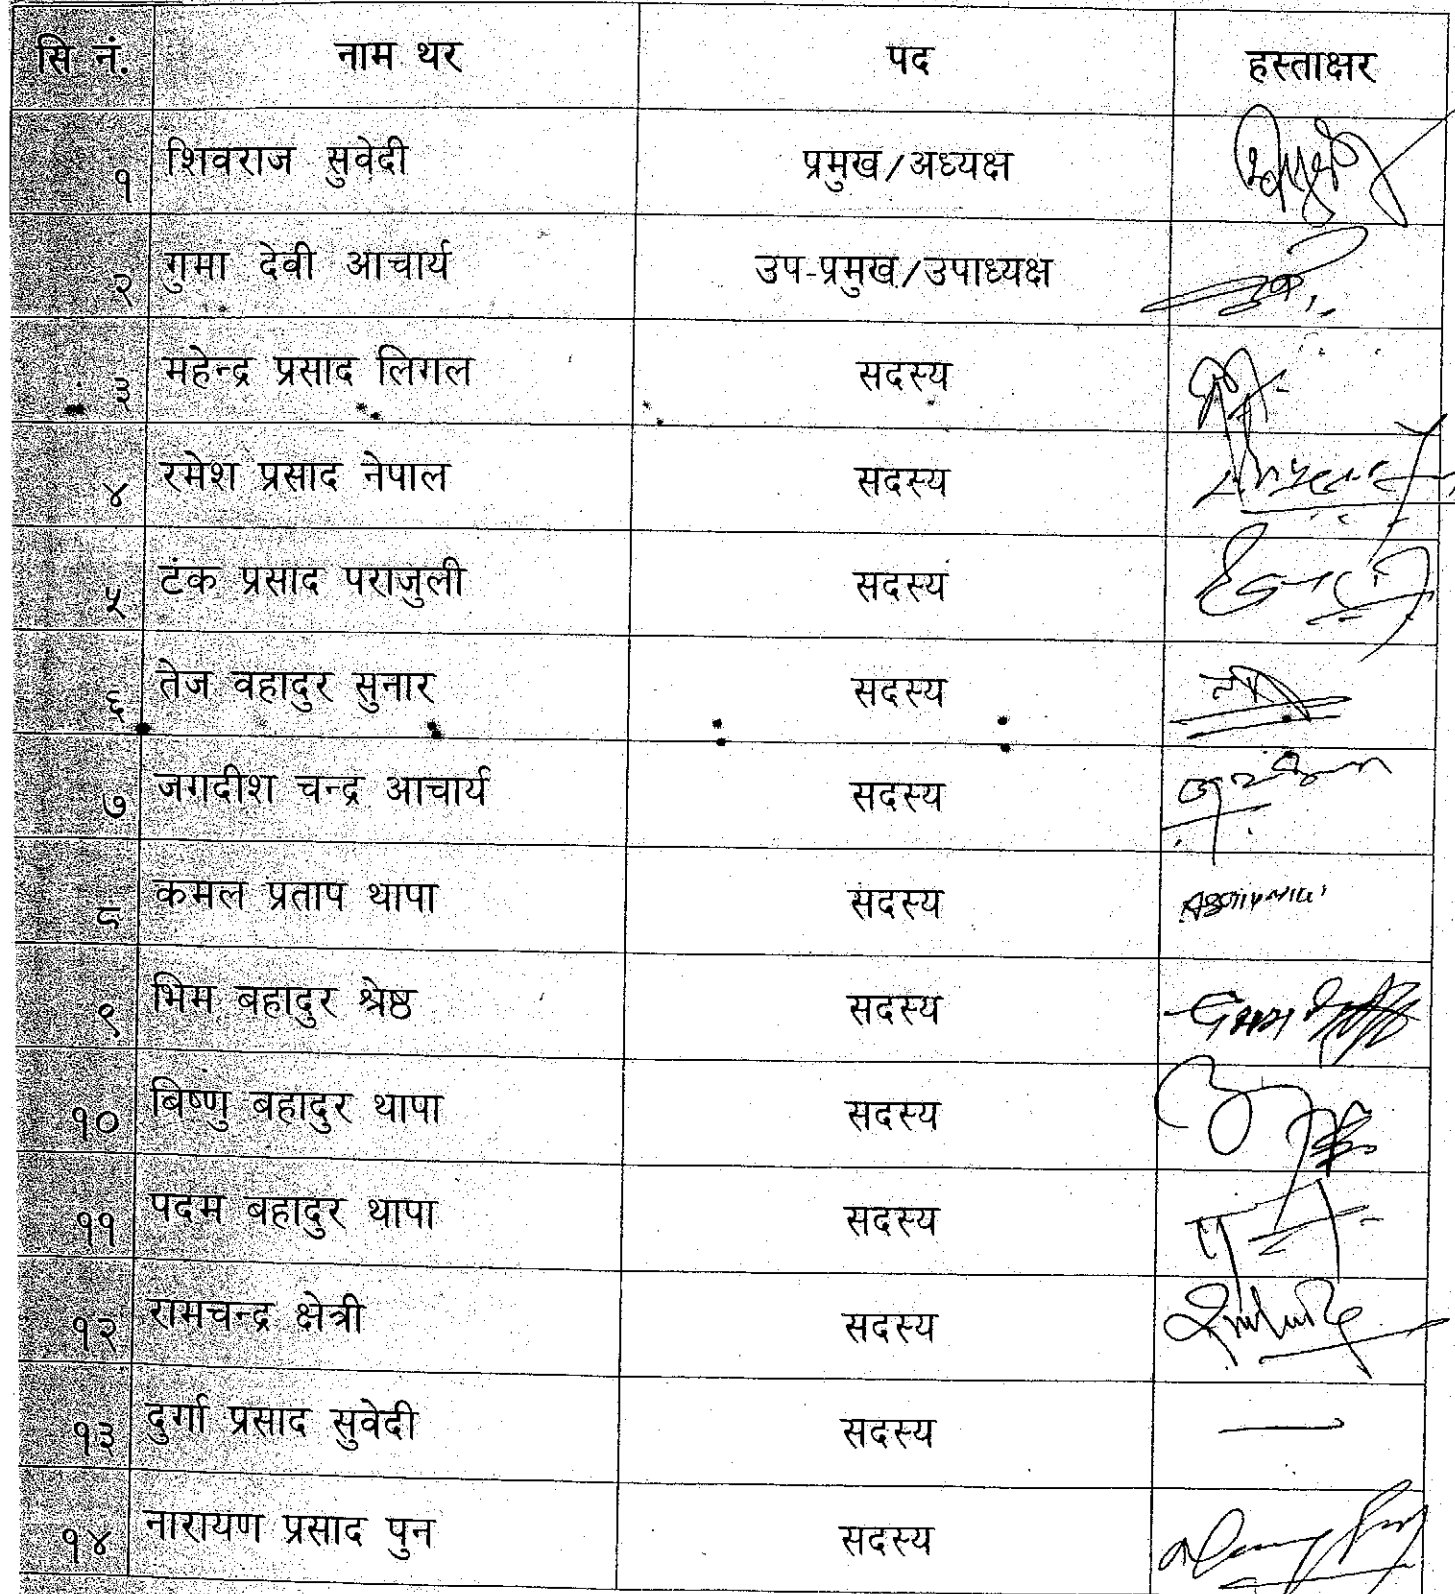 सि नं. नाम थर पद हस्ताक्षर
१ शिवराज सुवेदी प्रमुख/अध्यक्ष
२ गुमा देवी आचार्य उप-प्रमुख/उपाध्यक्ष
३ महेन्द्र प्रसाद लिगल सदस्य
४ रमेश प्रसाद नेपाल सदस्य
५ टंक प्रसाद पराजुली सदस्य
६ तेज वहादुर सुनार सदस्य
७ जगदीश चन्द्र आचार्य सदस्य
८ कमल प्रताप थापा सदस्य
९ भिम बहादुर श्रेष्ठ सदस्य
१० बिष्णु बहादुर थापा सदस्य
११ पदम बहादुर थापा सदस्य
१२ रामचन्द्र क्षेत्री सदस्य
१३ दुर्गा प्रसाद सुवेदी सदस्य
१४ नारायण प्रसाद पुन सदस्य